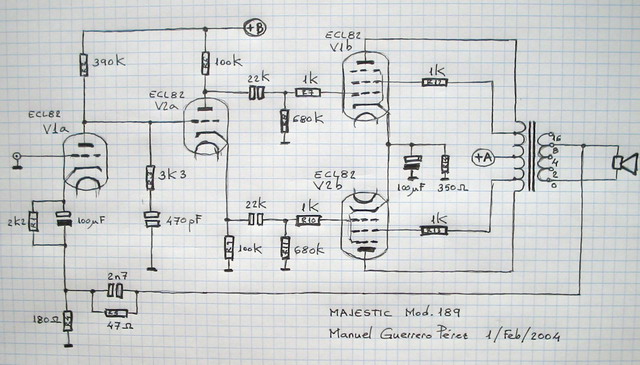 +B
390k
100k
ECL82
V1a
ECL82
V2a
22k
1k
R7
680k
ECL82
V1b
1k
R12
+A
16
8
4
2
0
100µF
350Ω
3K3
470pF
2k2
100µF
22k
1k
R10
100k
680k
ECL82
V2b
1k
2n7
47Ω
180Ω
MAJESTIC Mod. 189
Manuel Guerrero Pérez 1/Feb/2004